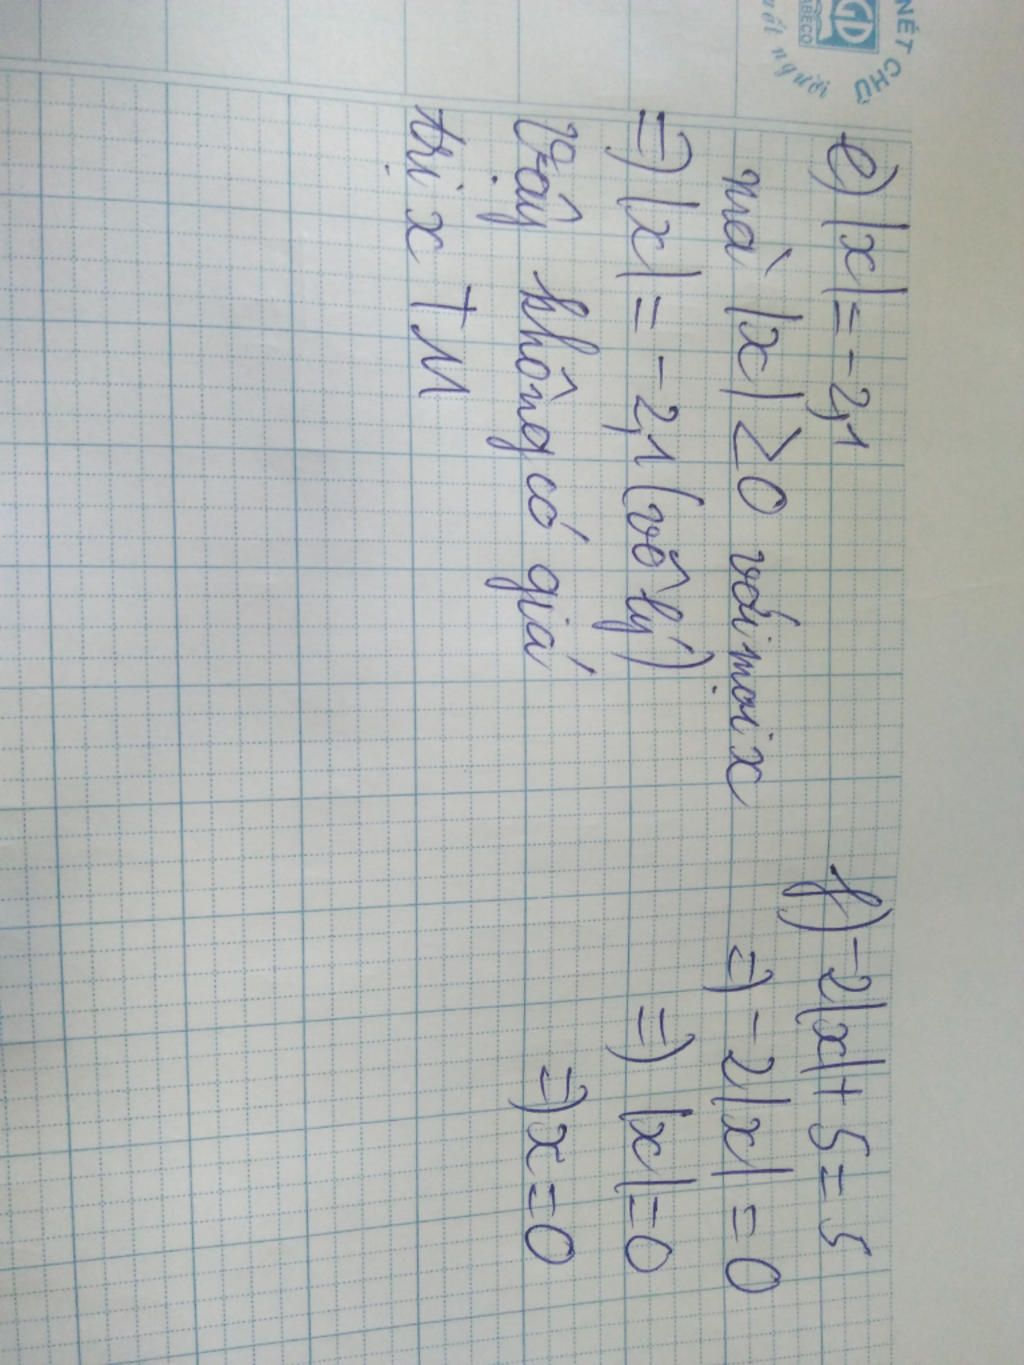 NÉT CHỮ
GD
ABECO
nết người
e) |x| = -2,1
mà |x| ≥ 0 với mọi x
=> |x| = -2,1 (vô lý)
Vậy không có giá
trị x TM
f) -2|x| + 5 = 5
=> -2|x| = 0
=> |x| = 0
=> x = 0